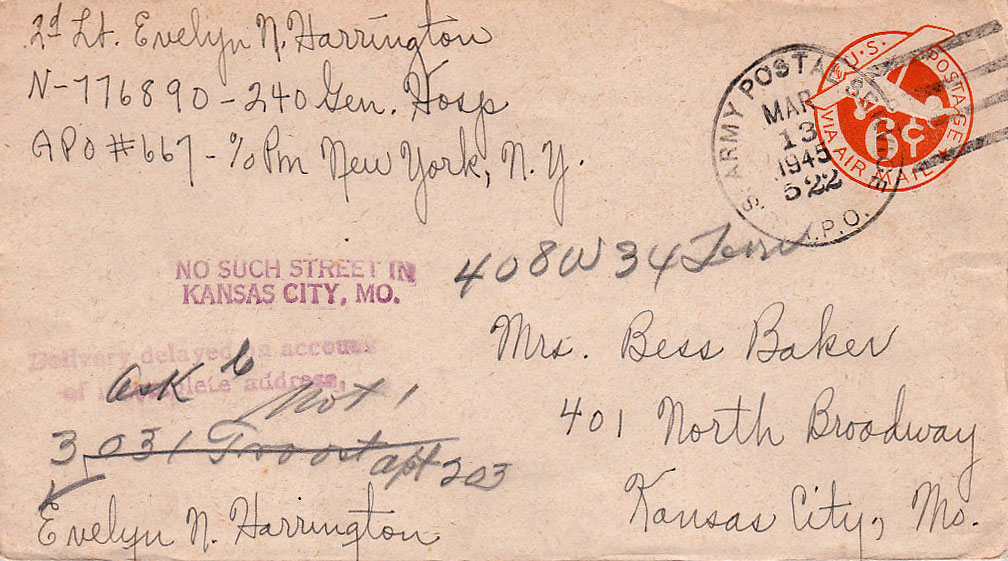 2d Lt. Evelyn N. Harrington
N-776890-240 Gen. Hosp
APO #667 - % Pm New York, N.Y.
U.S. POSTAGE
6¢
VIA AIR MAIL
U.S. ARMY POSTAL SERVICE
MAR
13
1945
522
A.P.O.
NO SUCH STREET IN
KANSAS CITY, MO.
408 W 34 Terr
Delivery delayed on account
of incomplete address.
Mrs. Bess Baker
Ask 6
Not 1
401 North Broadway
3031 Troost apt 203
Kansas City, Mo.
Evelyn N. Harrington